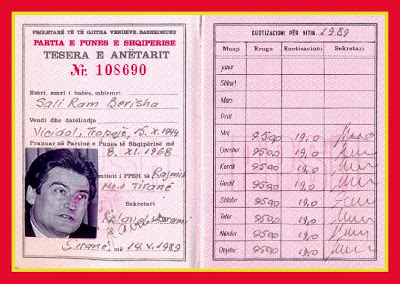 PROLETARË TË TË GJITHA VENDEVE, BASHKOHUNI
PARTIA E PUNES E SHQIPERISE
TESERA E ANËTARIT
Nr. 108690
Emri, emri i babës, mbiemri
Sali Ram Berisha
Vendi dhe datëlindja
Viçidol, Tropojë, 15.X.1944
Pranuar në Partinë e Punës të Shqipërisë më
8. XI. 1968
Komiteti i PPSH të Rajonit
Nr. 1 Tiranë
Sekretari
Tiranë, më 14.V.1989
KUOTIZACIONI PËR VITIN 1989
Muaji Rroga Kuotizacioni Sekretari
Janar
Shkurt
Mars
Prill
Maj 950,0 19,0
Qershor 950,0 19,0
Korrik 950,0 19,0
Gusht 950,0 19,0
Shtator 950,0 19,0
Tetor 950,0 19,0
Nëntor 950,0 19,0
Dhjetor 950,0 19,0